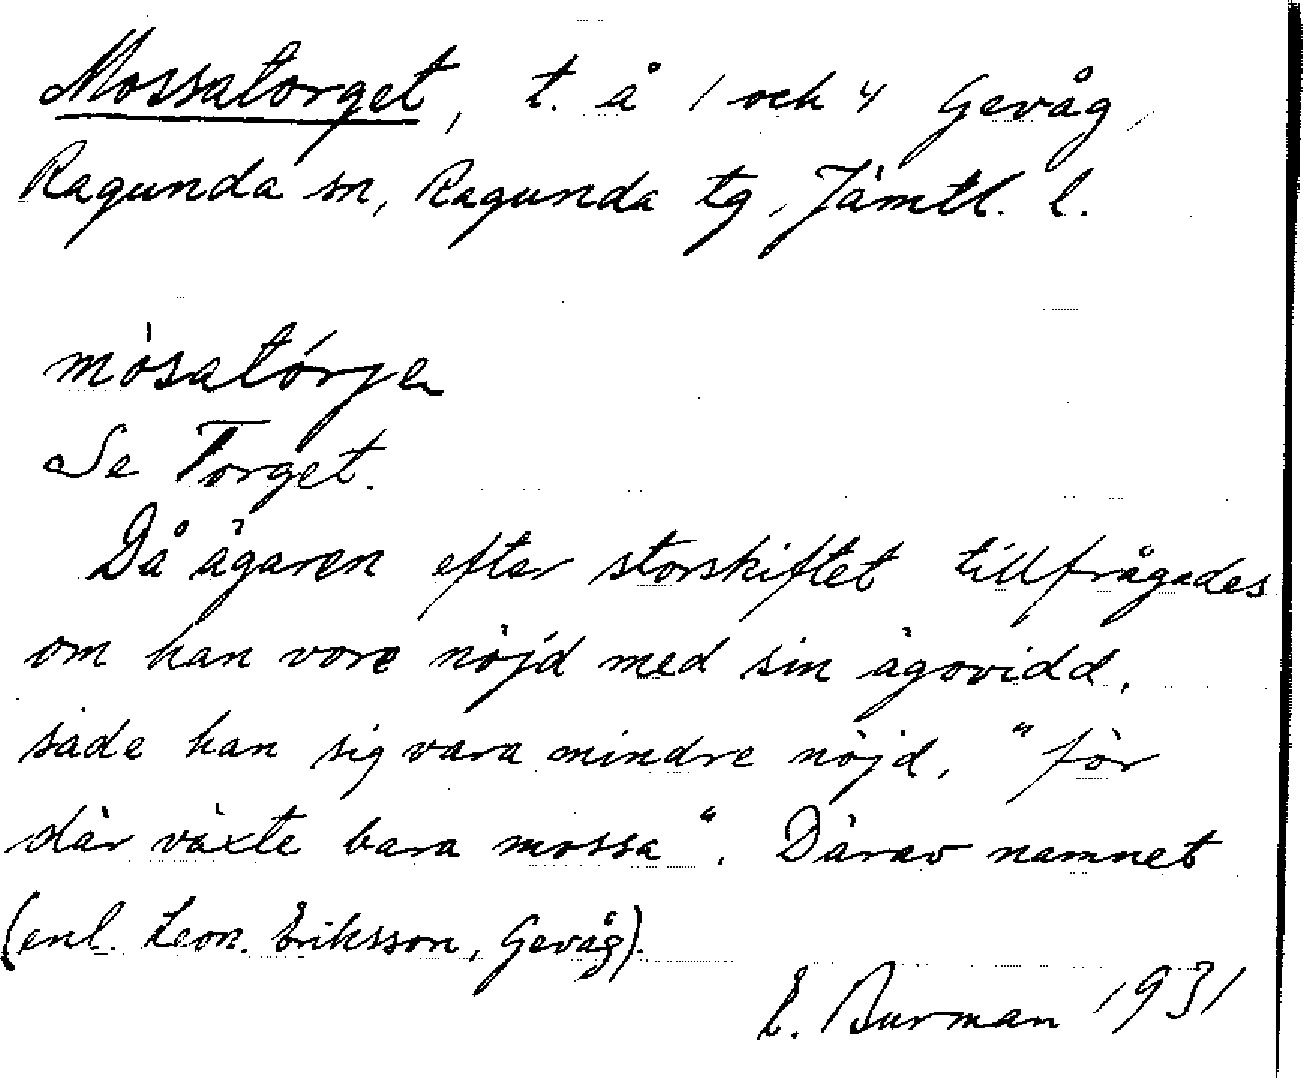 Mossatorget, t. å 1 och 4 Gevåg,
Ragunda sn, Ragunda tg, Jämtl. l.
mòsatórje
Se Torget.
Då ägaren efter storskiftet tillfrågades
om han vore nöjd med sin ägovidd,
sade han sig vara mindre nöjd, "för
där växte bara mossa". Därav namnet
(enl. Leon. Eriksson, Gevåg).
E. Burman 1931